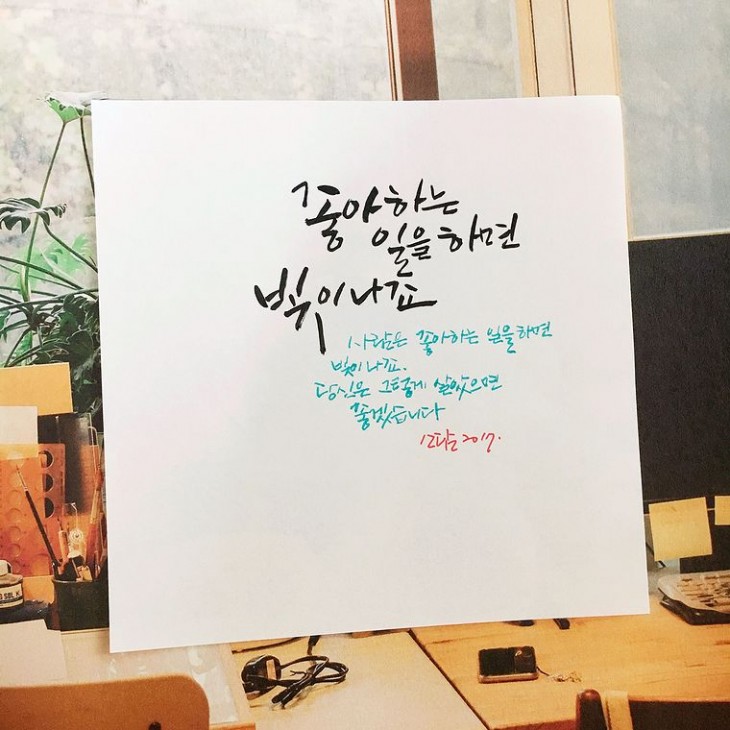 좋아하는
일을 하면
빛이 나죠
사람은 좋아하는 일을 하면
빛이 나죠.
당신은 그렇게 살았으면
좋겠습니다
2017.